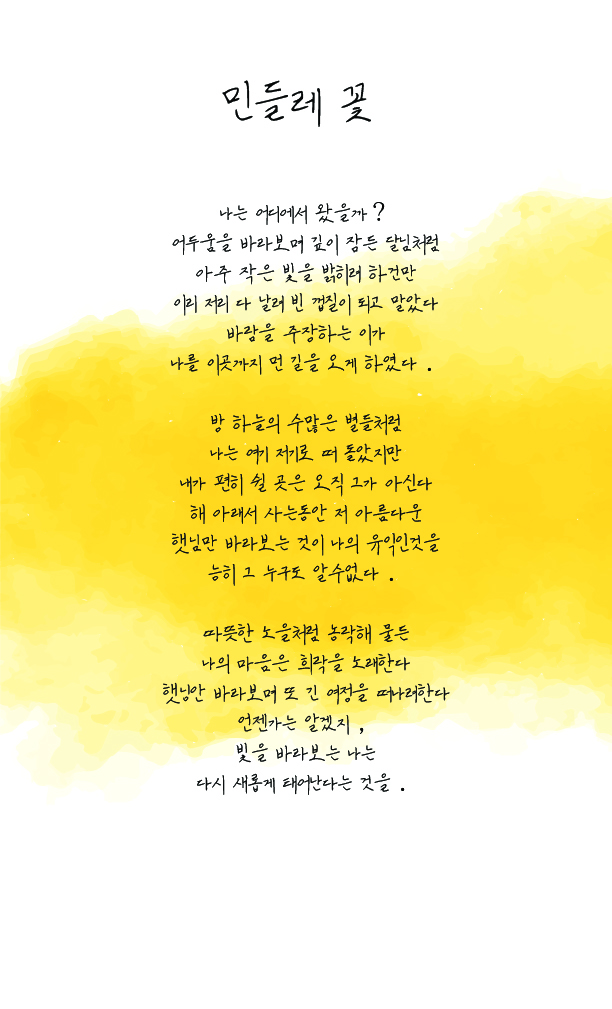 민들레 꽃
나는 어디에서 왔을까?
어두움을 바라보며 깊이 잠든 달님처럼
아주 작은 빛을 밝히려 하건만
이리 저리 다 날려 빈 껍질이 되고 말았다
바람을 주장하는 이가
나를 이곳까지 먼 길을 오게 하였다.
밤 하늘의 수많은 별들처럼
나는 여기 저기로 떠 돌았지만
내가 편히 쉴 곳은 오직 그가 아신다
해 아래서 사는동안 저 아름다운
햇님만 바라보는 것이 나의 유익인것을
능히 그 누구도 알수없다.
따뜻한 노을처럼 농락해 물든
나의 마음은 희락을 노래한다
햇님만 바라보며 또 긴 여정을 떠나려한다
언젠가는 알겠지,
빛을 바라보는 나는
다시 새롭게 태어난다는 것을.